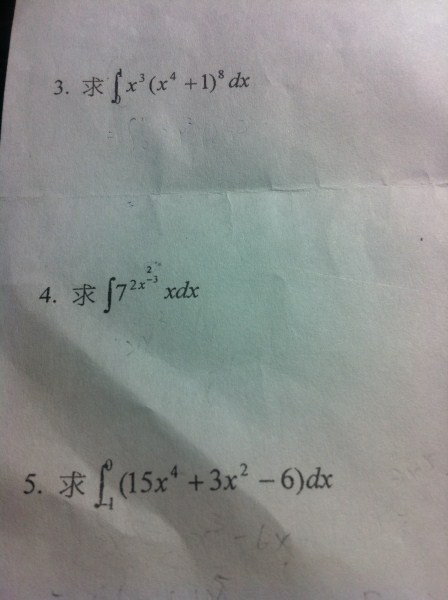 3. 求 ∫₀¹ x³(x⁴ + 1)⁸ dx
4. 求 ∫ 7^{2x²-3} xdx
5. 求 ∫₋₁⁰ (15x⁴ + 3x² − 6)dx